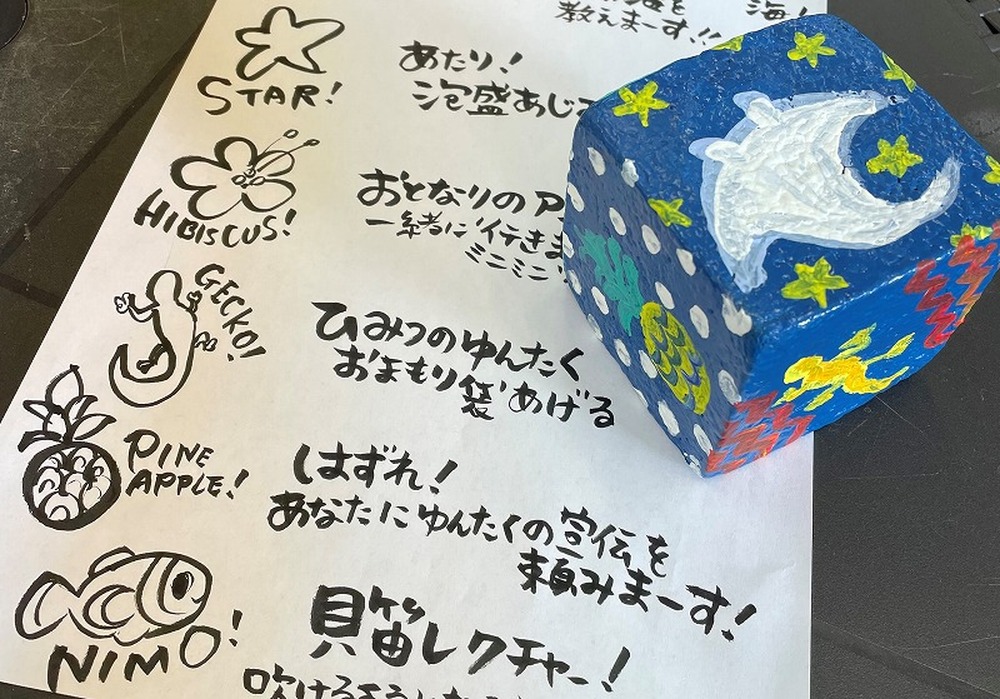 教えまーす!!
海!
STAR!
あたり!
泡盛あじ
HIBISCUS!
おとなりの
一緒に行きま
ミニミニ
GECKO!
ひみつのゆんたく
おまもり袋あげる
PINE
APPLE!
はずれ!
あなたにゆんたくの宣伝を
頼みまーす!
NIMO!
貝笛レクチャー!
吹けるようになる